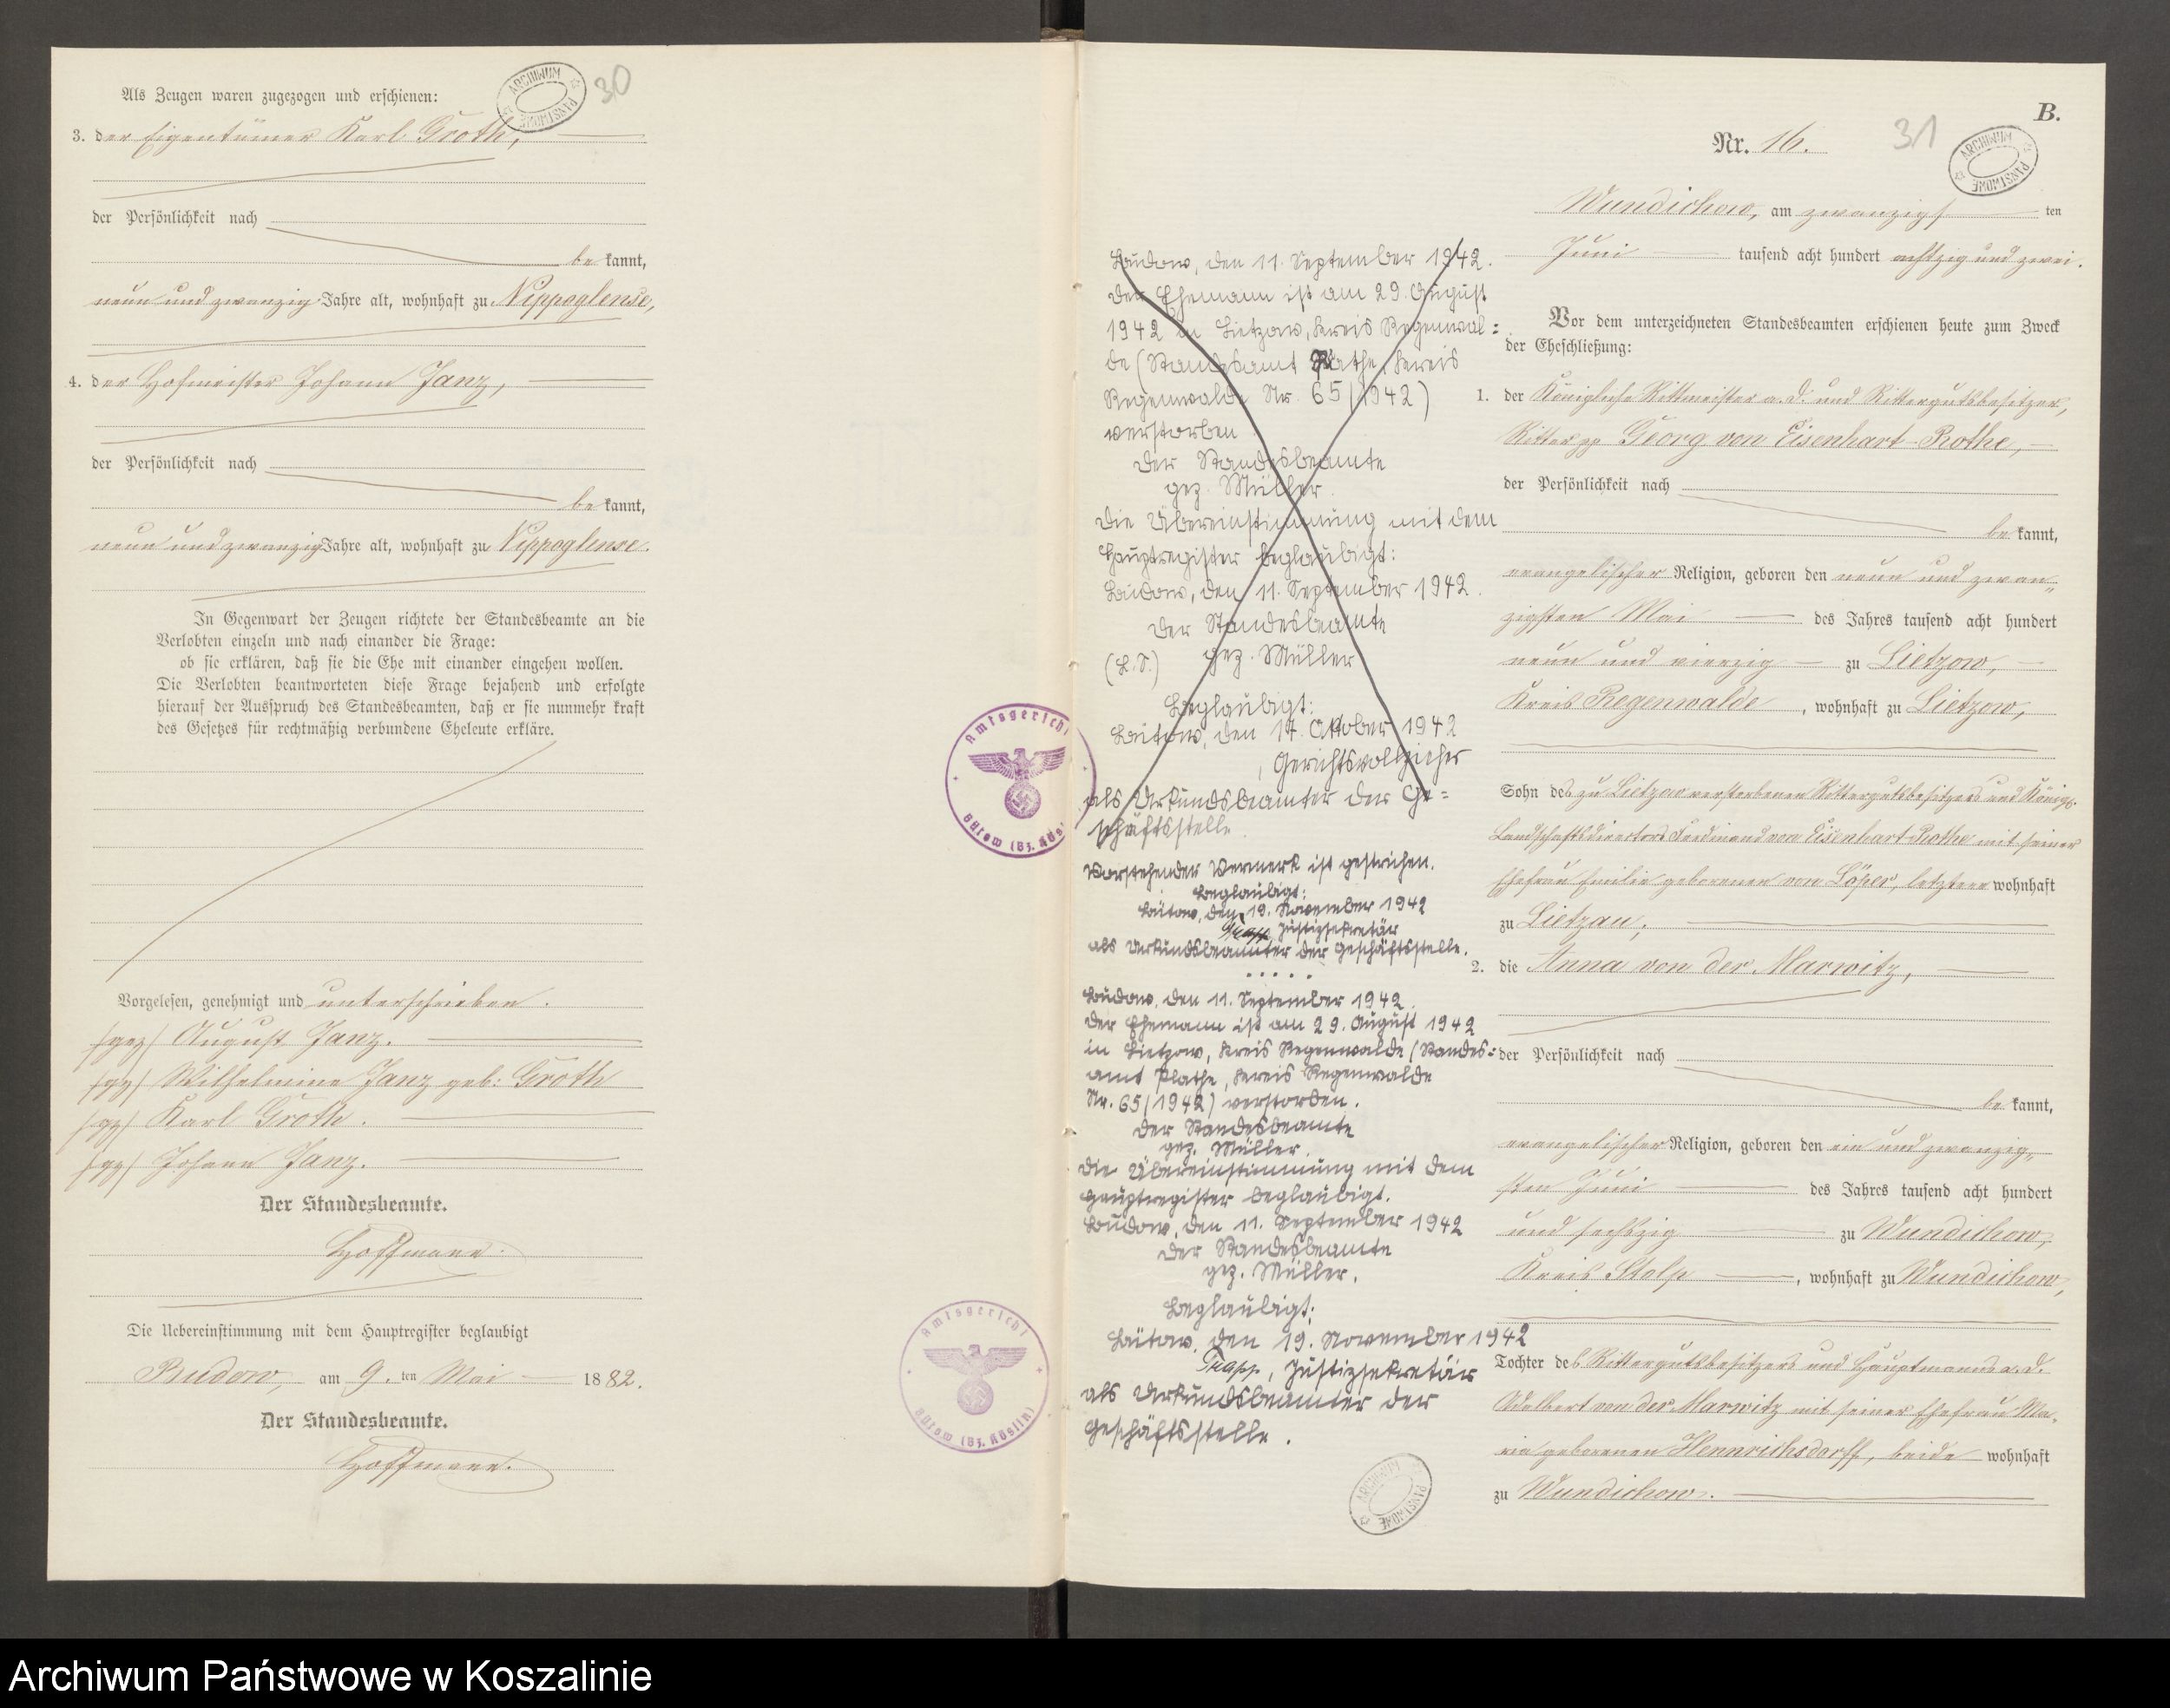 30
Als Zeugen waren zugezogen und erschienen:
3. der Eigentümer Karl Groth,
der Persönlichkeit nach
be kannt,
neun und zwanzig Jahre alt, wohnhaft zu Nippoglense,
4. der Hofmeister Johann Janz,
der Persönlichkeit nach
be kannt,
neun und zwanzig Jahre alt, wohnhaft zu Nippoglense.
In Gegenwart der Zeugen richtete der Standesbeamte an die
Verlobten einzeln und nach einander die Frage:
ob sie erklären, daß sie die Ehe mit einander eingehen wollen.
Die Verlobten beantworteten diese Frage bejahend und erfolgte
hierauf der Ausspruch des Standesbeamten, daß er sie nunmehr kraft
des Gesetzes für rechtmäßig verbundene Eheleute erkläre.
Vorgelesen, genehmigt und unterschrieben.
(gez) August Janz.
(gz) Wilhelmine Janz geb: Groth
(gz) Karl Groth.
(gz) Johann Janz.
Der Standesbeamte.
Hoffmann.
Die Uebereinstimmung mit dem Hauptregister beglaubigt
Budow, am 9. ten Mai 1882.
Der Standesbeamte.
Hoffmann.
ARCHIWUM PAŃSTWOWE
Amtsgericht
Bütow (Bz. Kös
Amtsgericht
Bütow (Bz. Köslin)
Budow, den 11. September 1942.
Der Ehemann ist am 29. August
1942 in Lietzow, Kreis Regenwal=
de (Standesamt Plathe, Kreis
Regenwalde Nr. 65/1942)
verstorben
Der Standesbeamte
gez. Müller.
Die Übereinstimmung mit dem
Hauptregister beglaubigt:
Budow, den 11. September 1942.
Der Standesbeamte
(L.S.) gez. Müller
Beglaubigt:
Bütow, den 17. Oktober 1942
, Gerichtsvollzieher
als Urkundsbeamter der Ge=
schäftsstelle.
Vorstehender Vermerk ist gestrichen.
Beglaubigt:
Bütow, den 19. November 1942
Justizsekretär
als Urkundsbeamter der Geschäftsstelle.
Budow, den 11. September 1942.
Der Ehemann ist am 29. August 1942
in Lietzow, Kreis Regenwalde (Standes=
amt Plathe, Kreis Regenwalde
Nr. 65/1942) verstorben.
Der Standesbeamte
gez. Müller.
Die Übereinstimmung mit dem
Hauptregister beglaubigt.
Budow, den 11. September 1942
Der Standesbeamte
gez. Müller.
Beglaubigt:
Bütow, den 19. November 1942
Trapp, Justizsekretär
als Urkundsbeamter der
Geschäftsstelle.
ARCHIWUM PAŃSTWOWE
B.
Nr. 16. 31
ARCHIWUM PAŃSTWOWE
Wundichow, am zwanzigs ten
Juni tausend acht hundert achtzig und zwei.
Vor dem unterzeichneten Standesbeamten erschienen heute zum Zweck
der Eheschließung:
1. der Königliche Rittmeister a. D. und Rittergutsbesitzer,
Ritter pp Georg von Eisenhart-Rothe,
der Persönlichkeit nach
be kannt,
evangelischer Religion, geboren den neun und zwan-
zigsten Mai des Jahres tausend acht hundert
neun und vierzig zu Lietzow,
Kreis Regenwalde, wohnhaft zu Lietzow,
Sohn des zu Lietzow verstorbenen Rittergutsbesitzers und Königl.
Landschaftsdirectors Ferdinand von Eisenhart-Rothe mit seiner
Ehefrau Emilie geborenen von Löper, letztere wohnhaft
zu Lietzau;
2. die Anna von der Marwitz,
der Persönlichkeit nach
be kannt,
evangelischer Religion, geboren den ein und zwanzig-
sten Juni des Jahres tausend acht hundert
und sechszig zu Wundichow,
Kreis Stolp, wohnhaft zu Wundichow,
Tochter des Rittergutsbesitzers und Hauptmanns a. D.
Adelbert von der Marwitz mit seiner Ehefrau Ma-
rie geborenen Hennrichsdorff, beide wohnhaft
zu Wundichow.
Archiwum Państwowe w Koszalinie